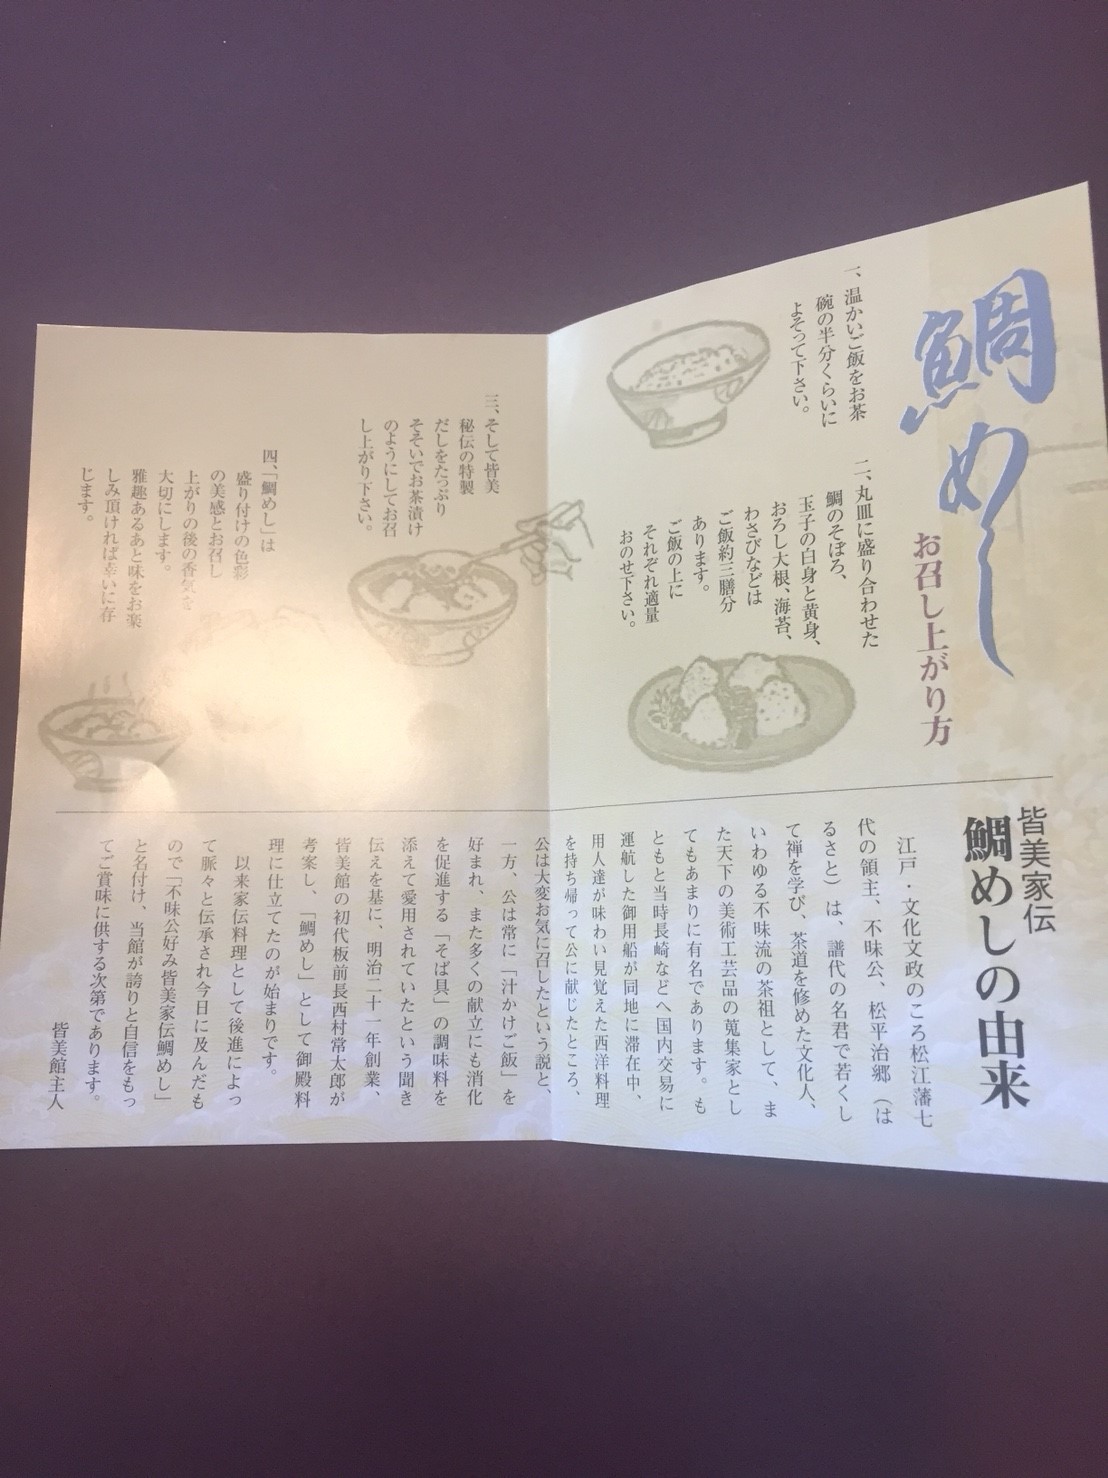 鯛めし
お召し上がり方
一、温かいご飯をお茶
碗の半分くらいに
よそって下さい。
二、丸皿に盛り合わせた
鯛のそぼろ、
玉子の白身と黄身、
おろし大根、海苔、
わさびなどは
ご飯約三膳分
あります。
ご飯の上に
それぞれ適量
おのせ下さい。
三、そして皆美
秘伝の特製
だしをたっぷり
そそいでお茶漬け
のようにしてお召
し上がり下さい。
四、「鯛めし」は
盛り付けの色彩
の美感とお召し
上がりの後の香気を
大切にします。
雅趣あるあと味をお楽
しみ頂ければ幸いに存
じます。
皆美家伝
鯛めしの由来
江戸・文化文政のころ松江藩七
代の領主、不昧公、松平治郷（は
るさと）は、譜代の名君で若くし
て禅を学び、茶道を修めた文化人、
いわゆる不昧流の茶祖として、ま
た天下の美術工芸品の蒐集家とし
てもあまりに有名であります。も
ともと当時長崎などへ国内交易に
運航した御用船が同地に滞在中、
用人達が味わい見覚えた西洋料理
を持ち帰って公に献じたところ、
公は大変お気に召したという説と、
一方、公は常に「汁かけご飯」を
好まれ、また多くの献立にも消化
を促進する「そば具」の調味料を
添えて愛用されていたという聞き
伝えを基に、明治二十一年創業、
皆美館の初代板前長西村常太郎が
考案し、「鯛めし」として御殿料
理に仕立てたのが始まりです。
以来家伝料理として後進によっ
て脈々と伝承され今日に及んだも
ので「不昧公好み皆美家伝鯛めし」
と名付け、当館が誇りと自信をもっ
てご賞味に供する次第であります。
皆美館主人